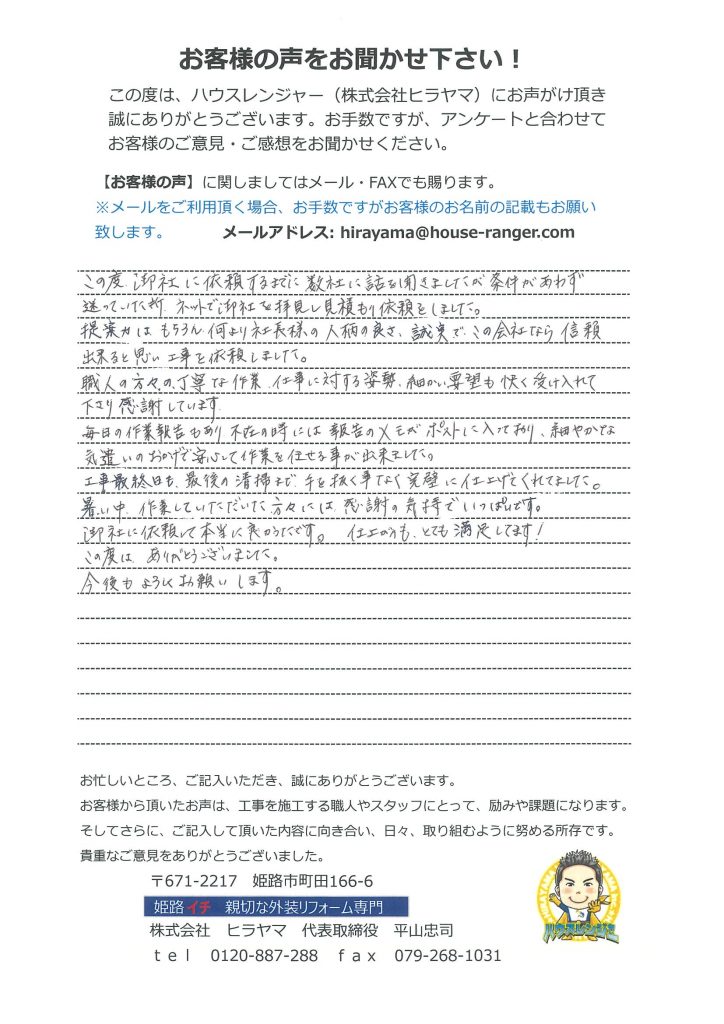 お客様の声をお聞かせ下さい！
この度は、ハウスレンジャー（株式会社ヒラヤマ）にお声がけ頂き
誠にありがとうございます。お手数ですが、アンケートと合わせて
お客様のご意見・ご感想をお聞かせください。
【お客様の声】に関しましてはメール・FAXでも賜ります。
※メールをご利用頂く場合、お手数ですがお客様のお名前の記載もお願い
致します。 メールアドレス: hirayama@house-ranger.com
この度、御社に依頼するまでに数社に話を聞きましたが条件があわず
迷っていた所、ネットで御社を拝見し見積もり依頼をしました。
提案力はもちろん何より社長様の人柄の良さ、誠実で、この会社なら信頼
出来ると思い工事を依頼しました。
職人の方々の丁寧な作業、仕事に対する姿勢、細かい要望も快く受け入れて
下さり感謝しています。
毎日の作業報告もあり不在の時には報告のメモがポストに入っており、細やかな
気遣いのおかげで安心して作業を任せる事が出来ました。
工事最終日も、最後の清掃まで、手を抜く事なく完璧に仕上げてくれてました。
暑い中、作業していただいた方々には、感謝の気持でいっぱいです。
御社に依頼して本当に良かったです。 仕上がりも、とても満足してます！
この度は、ありがとうございました。
今後もよろしくお願いします。
お忙しいところ、ご記入いただき、誠にありがとうございます。
お客様から頂いたお声は、工事を施工する職人やスタッフにとって、励みや課題になります。
そしてさらに、ご記入して頂いた内容に向き合い、日々、取り組むように努める所存です。
貴重なご意見をありがとうございました。
〒671-2217 姫路市町田166-6
姫路イチ 親切な外装リフォーム専門
株式会社 ヒラヤマ 代表取締役 平山忠司
ｔｅｌ 0120-887-288 ｆａｘ 079-268-1031
ハウスレンジャー